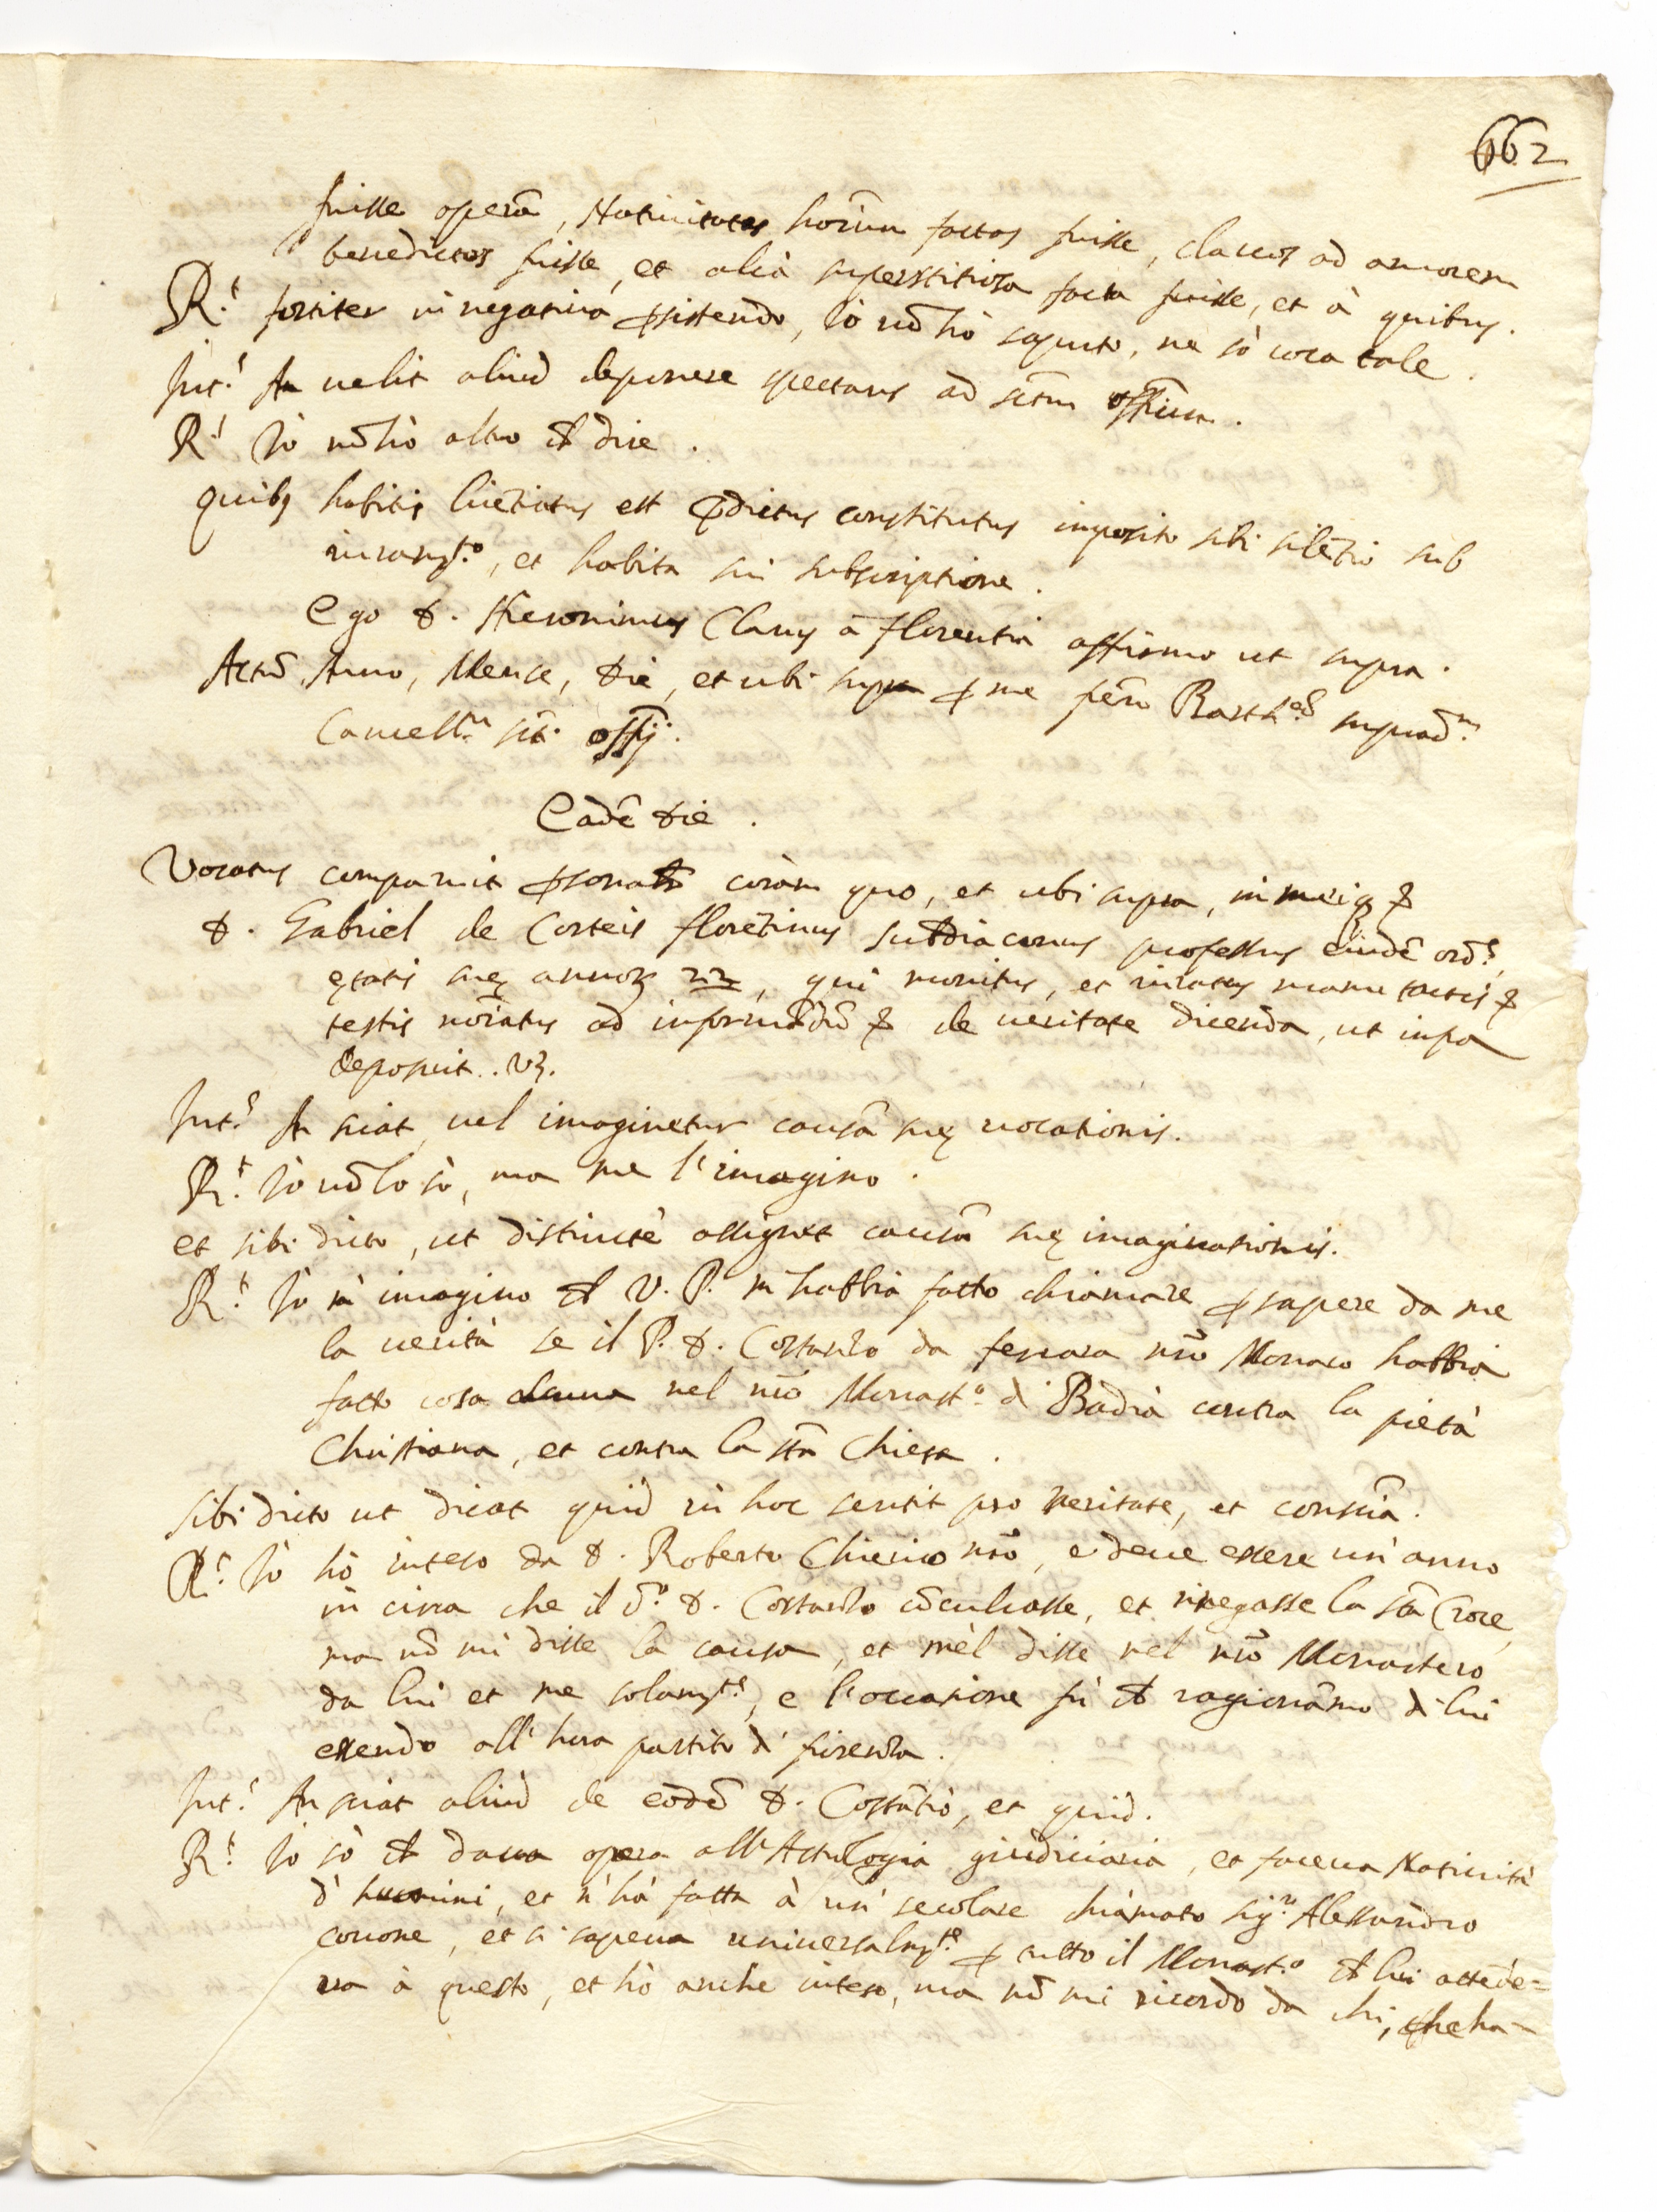 662
fuisse operã, Natiuitates hoĩum factas fuisse, clauos ad amorem
benedictos fuisse, et alia superstitiosa facta fuisse, et à quibus.
R.t fortiter in negatiua psistendo, Io nõ hò saputo, ne sò cosa tale.
Int.s An uelit aliud deponere spectans ad sctm offium.
R.t Io nõ hò altro ch dire.
Quibq habitis licẽtiatus est pdictus constitutus imposito sibi silẽtio sub
iuramto, et habita sui subscriptione.
Ego D. Hieronimus Clarus à Florentia affirmo ut supra.
Actũ Anno, Mense, Die, et ubi supra p me
Cancellm sti offij.
Eadẽ Die.
Vocatus comparuit psonalr coràm quo, et ubi supra, in meiq &
D. Gabriel de Corteis florẽtinus subdiaconus professus eiusdẽ ord.s,
ętatis suę annoꝝ 22, qui monitus, et iuratus manu tactis &
testis noĩatus ad informãdũ & de ueritate dicenda, ut infra
deposuit. Vz.
Int.s An sciat, uel imaginetur causã suę uocationis.
R.t Io nõ lo sò, ma me l'imagino.
et sibi dicto, ut distinctè assignet causã suę imaginationis.
R.t Io m' imagino ch V. P. m' habbia fatto chiamare p sapere da me
la uerità se il P. D. Costanzo da ferrara nrõ Monaco habbia
fatto cosa alcuna nel nrõ Monast.o d' Badia contra la pietà
Christiana, et contra la stã Chiesa.
Sibi dicto ut dicat quid in hoc sentit pro ueritate, et consciã.
R.t Io hò inteso da D. Roberto Chierico nrõ, e deue essere un' anno
in circa che il d.o D. Costanzo cõculcasse, et rinegasse la stã Croce,
ma nõ mi disse la causa, et mèl disse nel nrõ Monastero
da lui et me solamte, e l'occasione fù ch ragionãmo d' lui
essendo all' hora partito d' firenza.
Int.s An sciat aliud de eodẽ D. Costãtio, et quid.
R.t Io sò ch daua opera all' Astrologia giudiciaria, et faceua Natiuità
d' huomini, et n' hà fatta à un' secolare chiamato sig.r Alessandro
couone, et si sapeua uniuersalmte p tutto il Monast.o ch lui attẽde=
ua à questo, et hò anche inteso, ma nõ mi ricordo da chi, che ha-